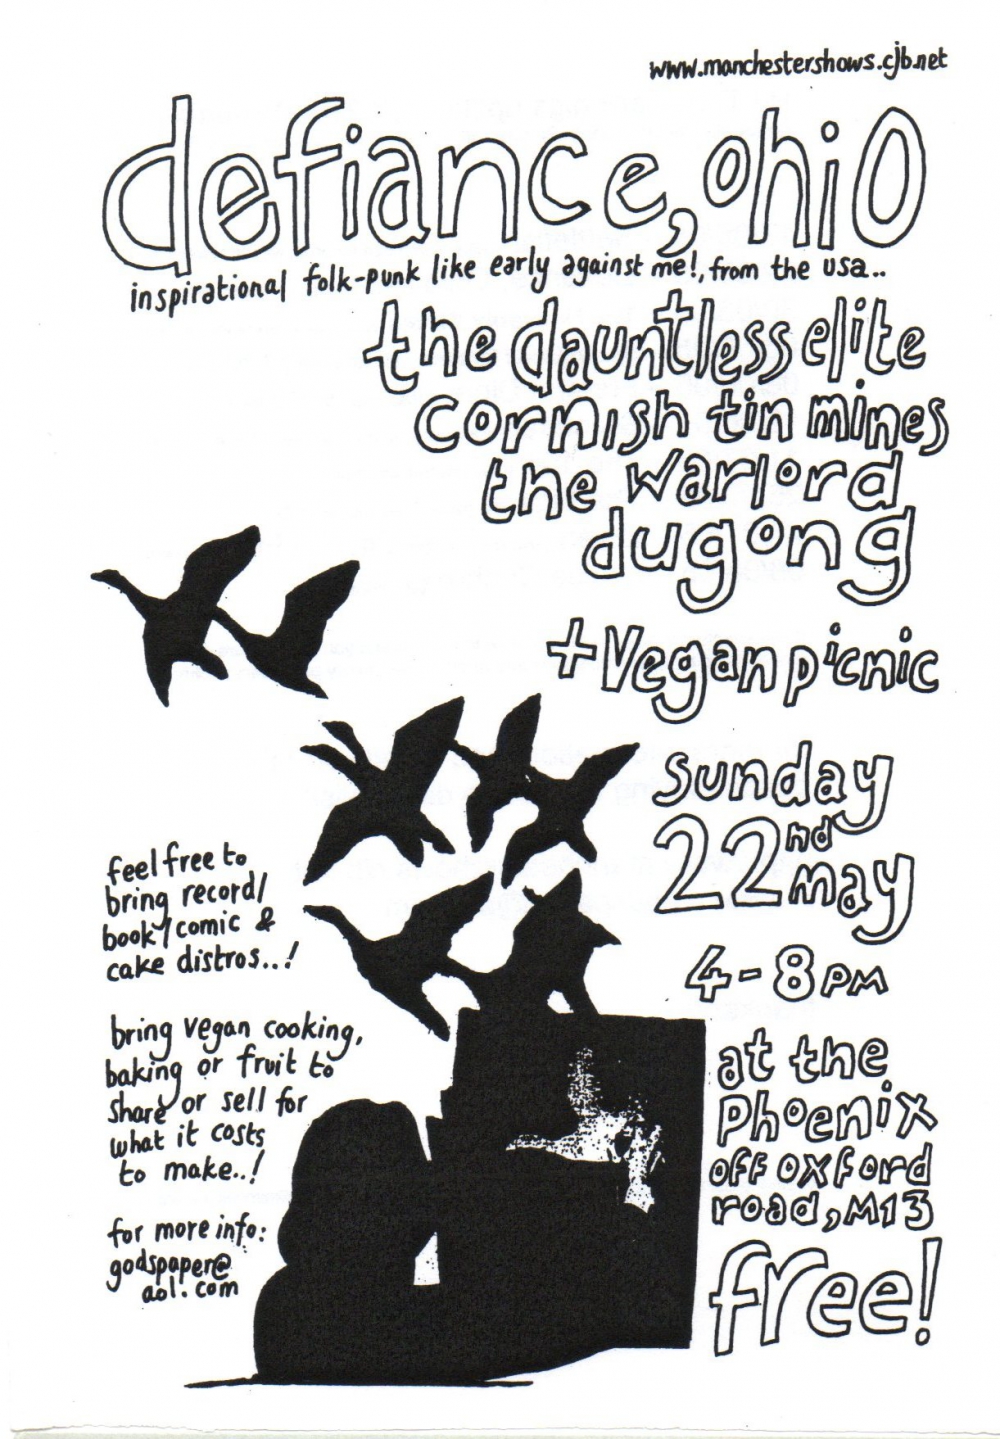 www.manchestershows.cjb.net
defiance, ohio
inspirational folk-punk like early against me!, from the usa..
the dauntless elite
cornish tin mines
the warlord
dugong
+ Vegan picnic
sunday
22nd
may
4-8pm
at the
Phoenix
off oxford
road, M13
free!
feel free to
bring record/
book/comic &
cake distros...!
bring vegan cooking,
baking or fruit to
share or sell for
what it costs
to make..!
for more info:
godspaper@
aol.com